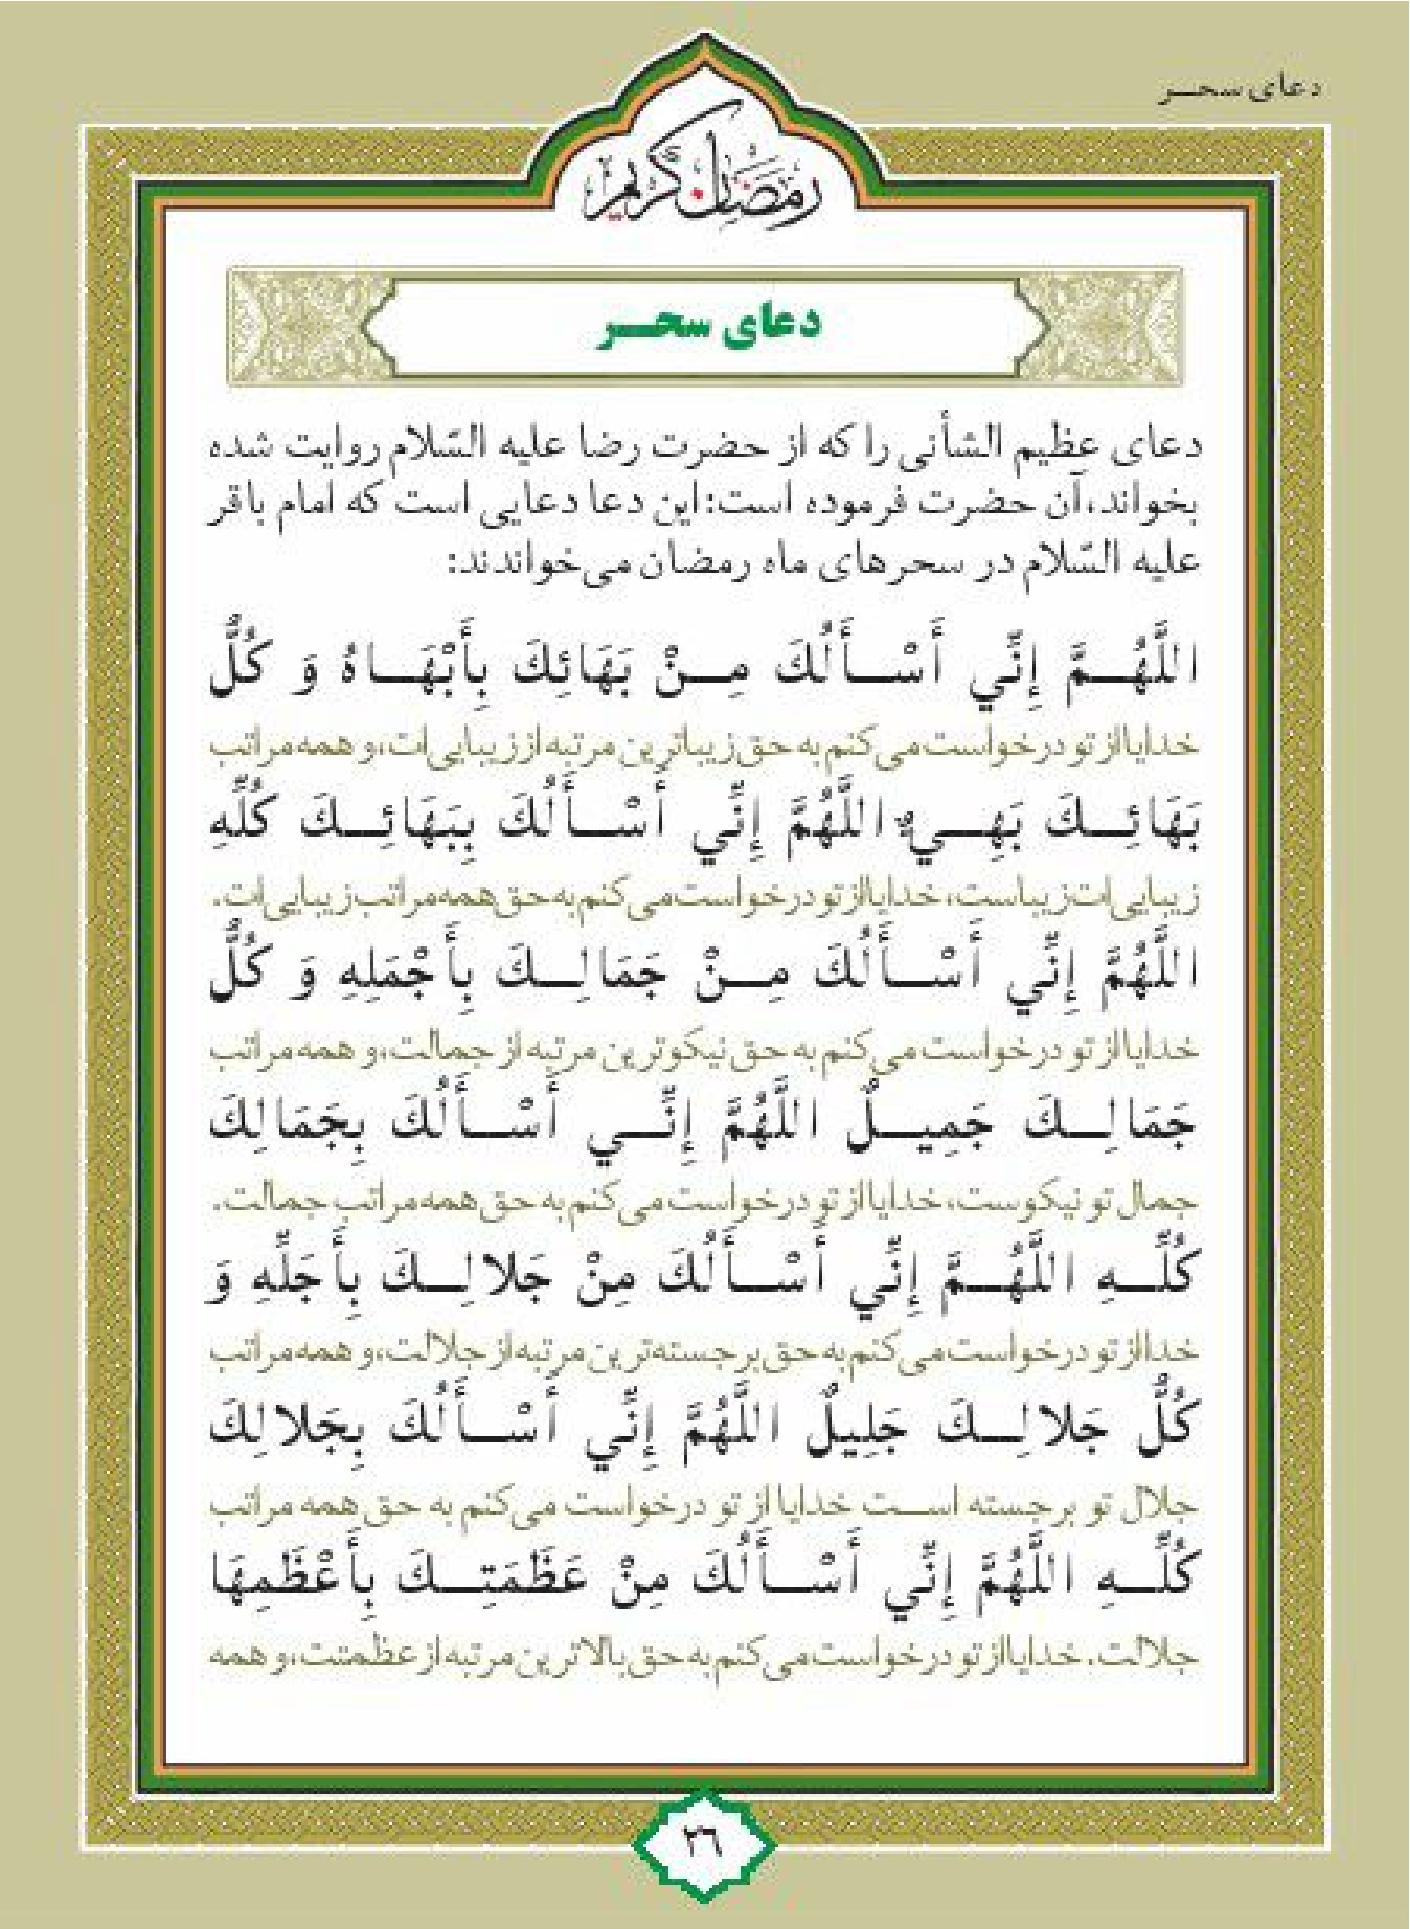 دعای سحـــر
رمضان كريم
دعای سحـــر
دعای عظیم الشأنی را که از حضرت رضا علیه السّلام روایت شده
بخواند، آن حضرت فرموده است: این دعا دعایی است که امام باقر
علیه السّلام در سحرهای ماه رمضان می‌خواندند:
اللَّهُـــمَّ إِنِّي أَسْـــأَلُكَ مِـــنْ بَهَائِكَ بِأَبْهَـــاهُ وَ كُلُّ
خدایا از تو درخواست می‌کنم به حق زیباترین مرتبه از زیبایی‌ات، و همه مراتب
بَهَائِـــكَ بَهِـــيٌّ، اللَّهُمَّ إِنِّي أَسْـــأَلُكَ بِبَهَائِـــكَ كُلِّهِ
زیبایی‌ات زیباست، خدایا از تو درخواست می‌کنم به حق همه مراتب زیبایی‌ات.
اللَّهُمَّ إِنِّي أَسْـــأَلُكَ مِـــنْ جَمَالِـــكَ بِأَجْمَلِهِ وَ كُلُّ
خدایا از تو درخواست می‌کنم به حق نیکوترین مرتبه از جمالت، و همه مراتب
جَمَالِـــكَ جَمِيـــلٌ اللَّهُمَّ إِنِّـــي أَسْـــأَلُكَ بِجَمَالِكَ
جمال تو نیکوست، خدایا از تو درخواست می‌کنم به حق همه مراتب جمالت.
كُلِّـــهِ اللَّهُـــمَّ إِنِّي أَسْـــأَلُكَ مِنْ جَلالِـــكَ بِأَجَلِّهِ وَ
خدا از تو درخواست می‌کنم به حق برجسته‌ترین مرتبه از جلالت، و همه مراتب
كُلُّ جَلالِـــكَ جَلِيلٌ اللَّهُمَّ إِنِّي أَسْـــأَلُكَ بِجَلالِكَ
جلال تو برجسته اســـت خدایا از تو درخواست می‌کنم به حق همه مراتب
كُلِّـــهِ اللَّهُمَّ إِنِّي أَسْـــأَلُكَ مِنْ عَظَمَتِـــكَ بِأَعْظَمِهَا
جلالت. خدایا از تو درخواست می‌کنم به حق بالاترین مرتبه از عظمتت، و همه
٢٦